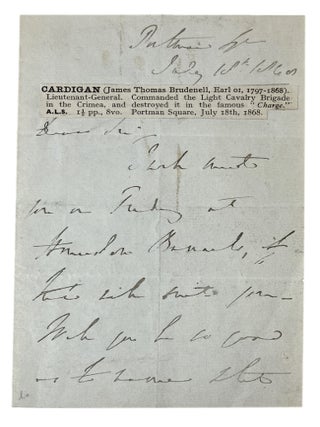 Portman Sqr
July 18th 1860
CARDIGAN (James Thomas Brudenell, Earl of, 1797-1868).
Lieutenant-General. Commanded the Light Cavalry Brigade
in the Crimea, and destroyed it in the famous "Charge."
A.L.S. 1½ pp., 8vo. Portman Square, July 18th, 1868.
Dear Sir,
you on Friday at
Barracks, if
this will suit you—
Will you be so good
as to